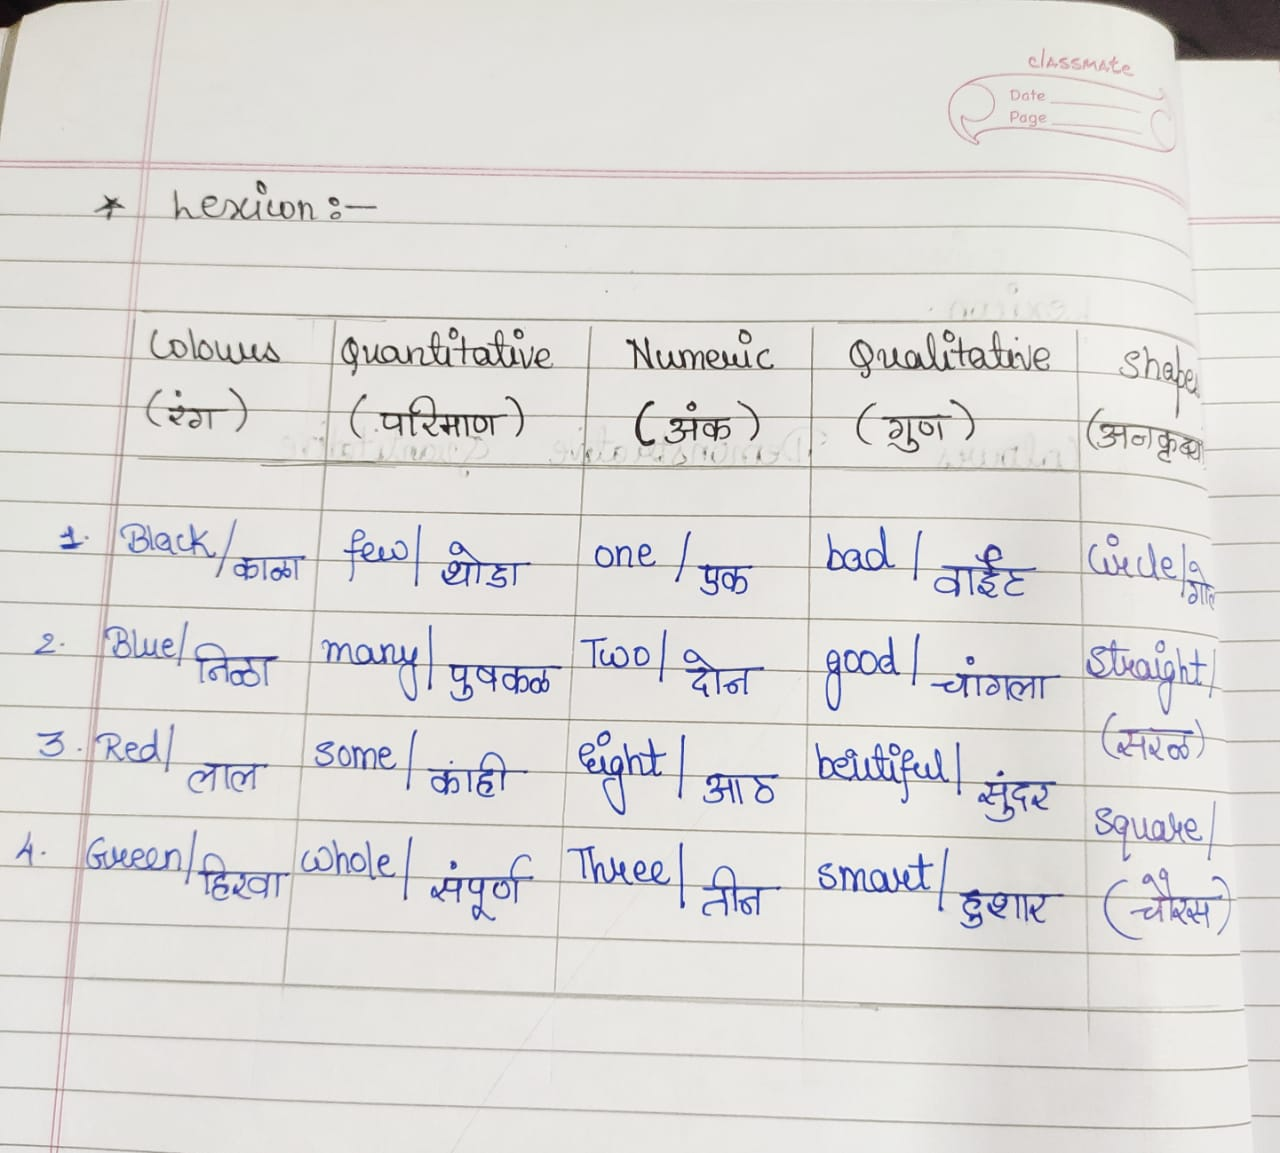 classmate
Date
Page
* Lexicon :-
Colours Quantitative Numeric Qualitative Shapes
(रंग) (परिमाण) (अंक) (गुण)
1. Black/काळा few/थोडा one/एक bad/वाईट Circle/गोल
2. Blue/निळा many/पुषकळ Two/दोन good/चांगला Straight/
(सरळ)
3. Red/लाल some/कांही Eight/आठ beutiful/सुंदर Square/
4. Green/हिरवा Whole/संपूर्ण Three/तीन smart/हुशार (चौरस)